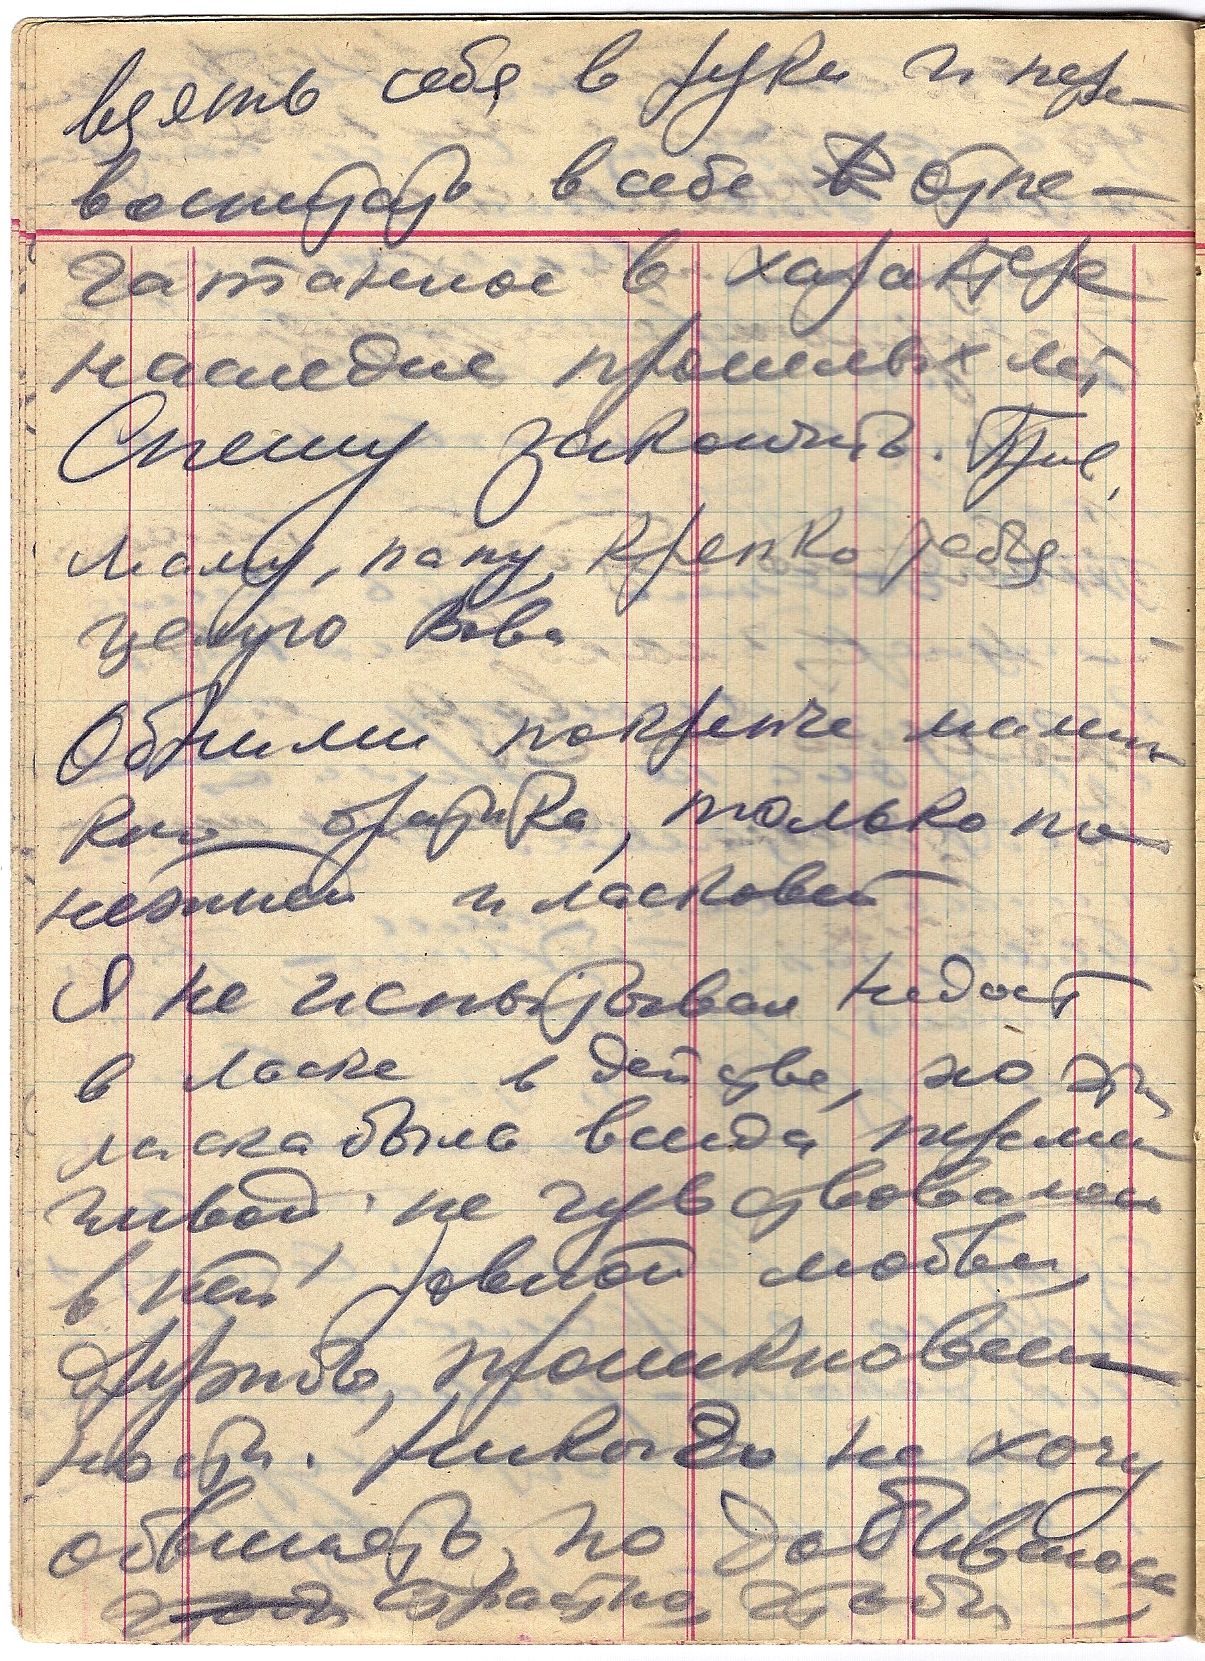 взять себя в руки и пере-
воспитать в себе отпе-
чатанное в характере
наследие прошлых лет
Спешу закончить. Тие,
маму, папу, крепко тебя
целую Вова
Обними покрепче малень
кого братика, только по-
нежней и ласковей
Я не испытывал недост
в ласке в детстве, но эта
ласка была всегда
чивой, не чувствовалось
в ней ровной любви,
дружбы, проникновен-
ности. Никого не хочу
обвинять, но добивался
страстно, чтобы